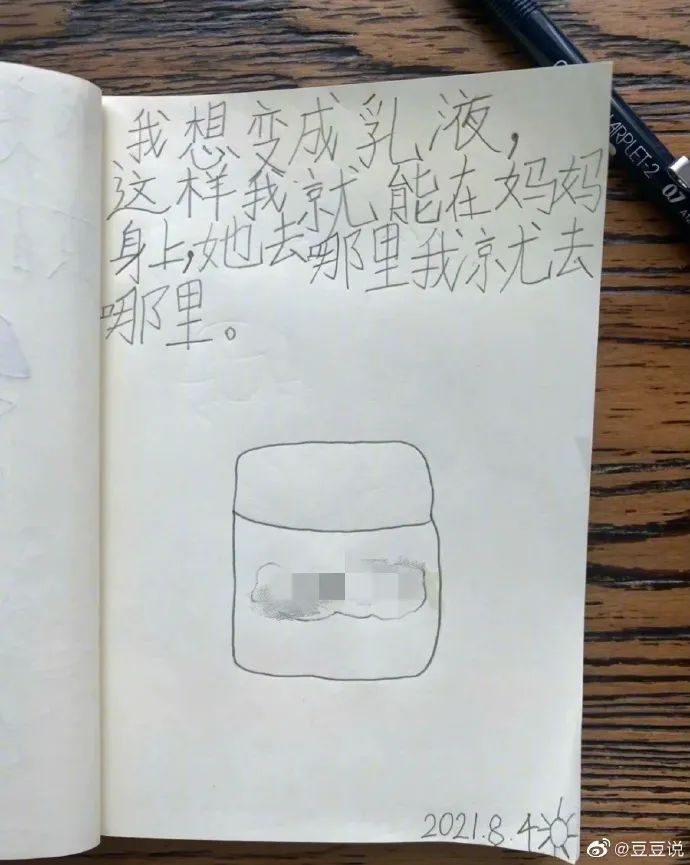 我想变成乳液，
这样我就能在妈妈
身上,她去哪里我凉尤去
哪里。
ARPLET-2 07
2021.8.4
@豆豆说